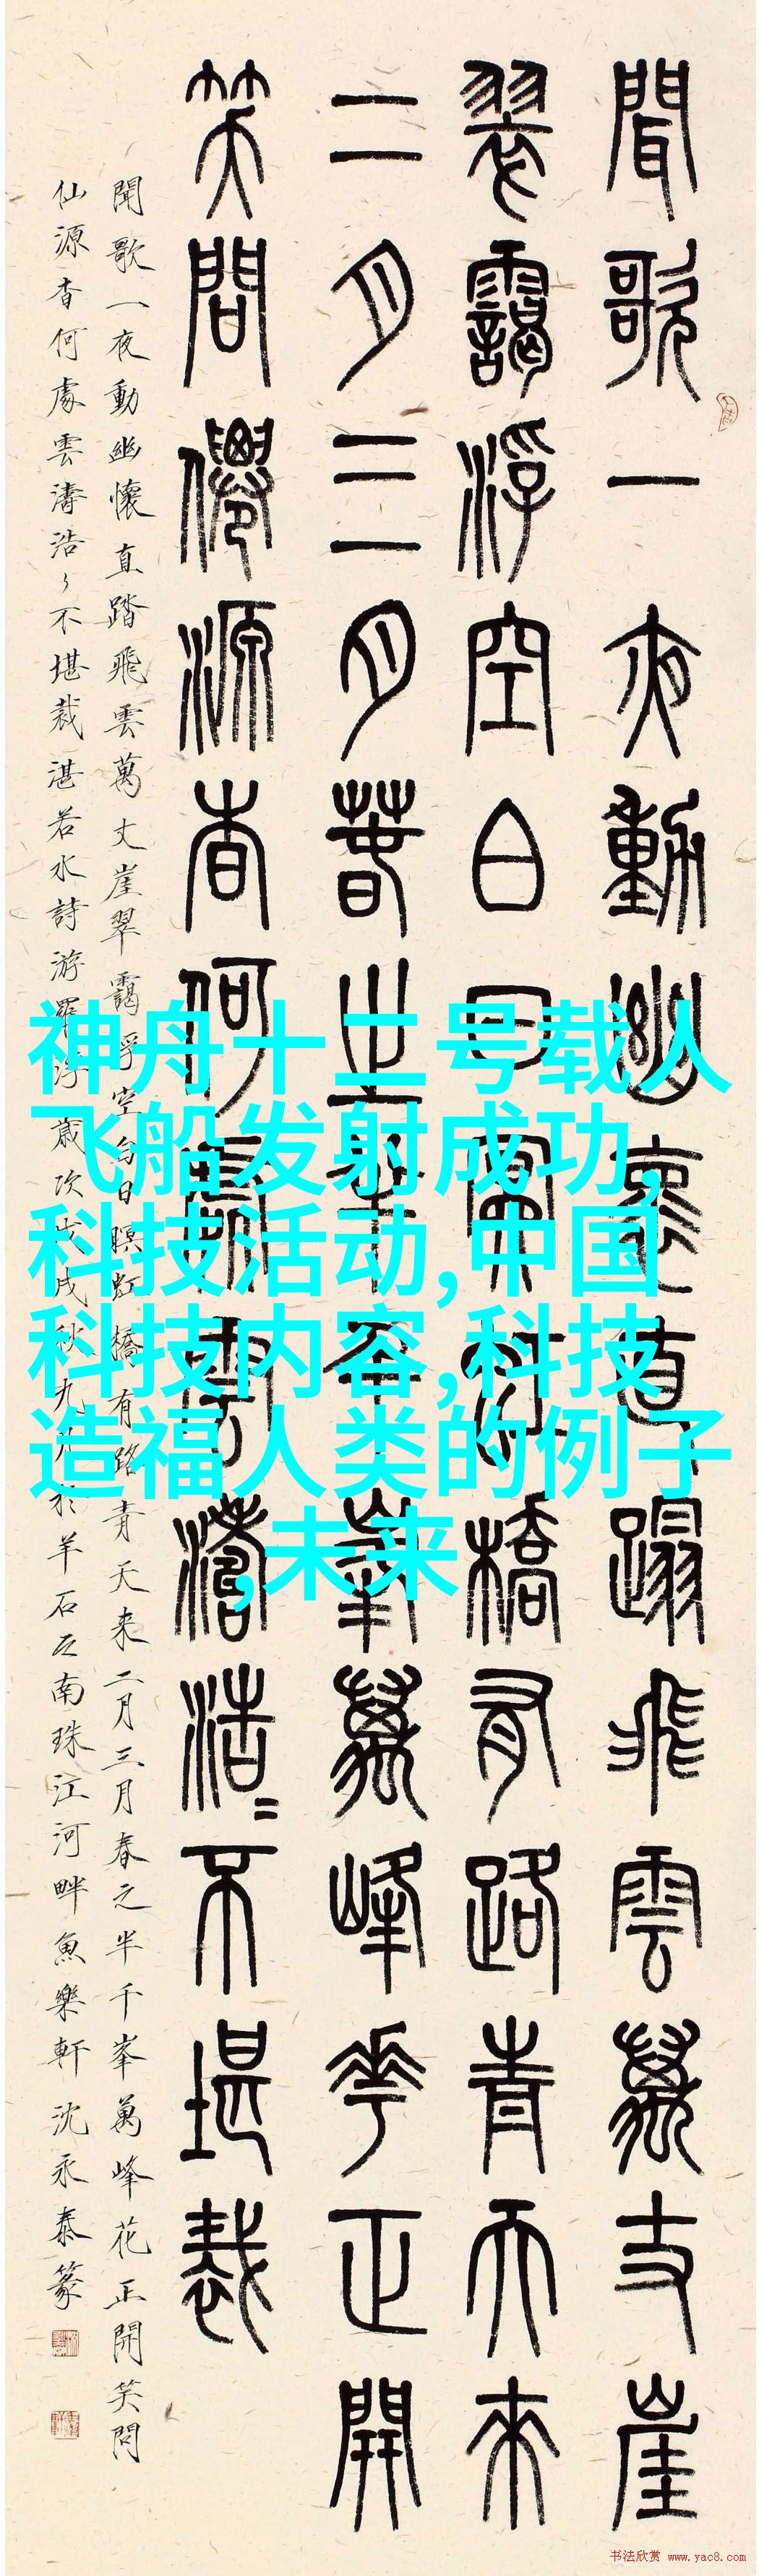 聞歌一夜動幽懷直蹋飛雲萬丈崖
翠靄浮空白日冥虹橋有路青天來
二月三月春之半千峯萬峰花正開
笑問僊源杳何處雲濤浩〻不堪裁
聞歌一夜動幽懷直踏飛雲萬丈崖翠靄浮空白日暝虹橋有路青天来二月三月春之半千峯萬峰花正開笑問
仙源杳何處雲濤浩〻不堪裁湛若水詩游羅浮歲次戊戌秋九月於羊石之南珠江河畔魚樂軒沈永泰篆
神舟十二号载人
飞船发射成功,
科技活动,中国
科技内容,科技
造福人类的例子
,未来
书法欣赏 www.yac8.com